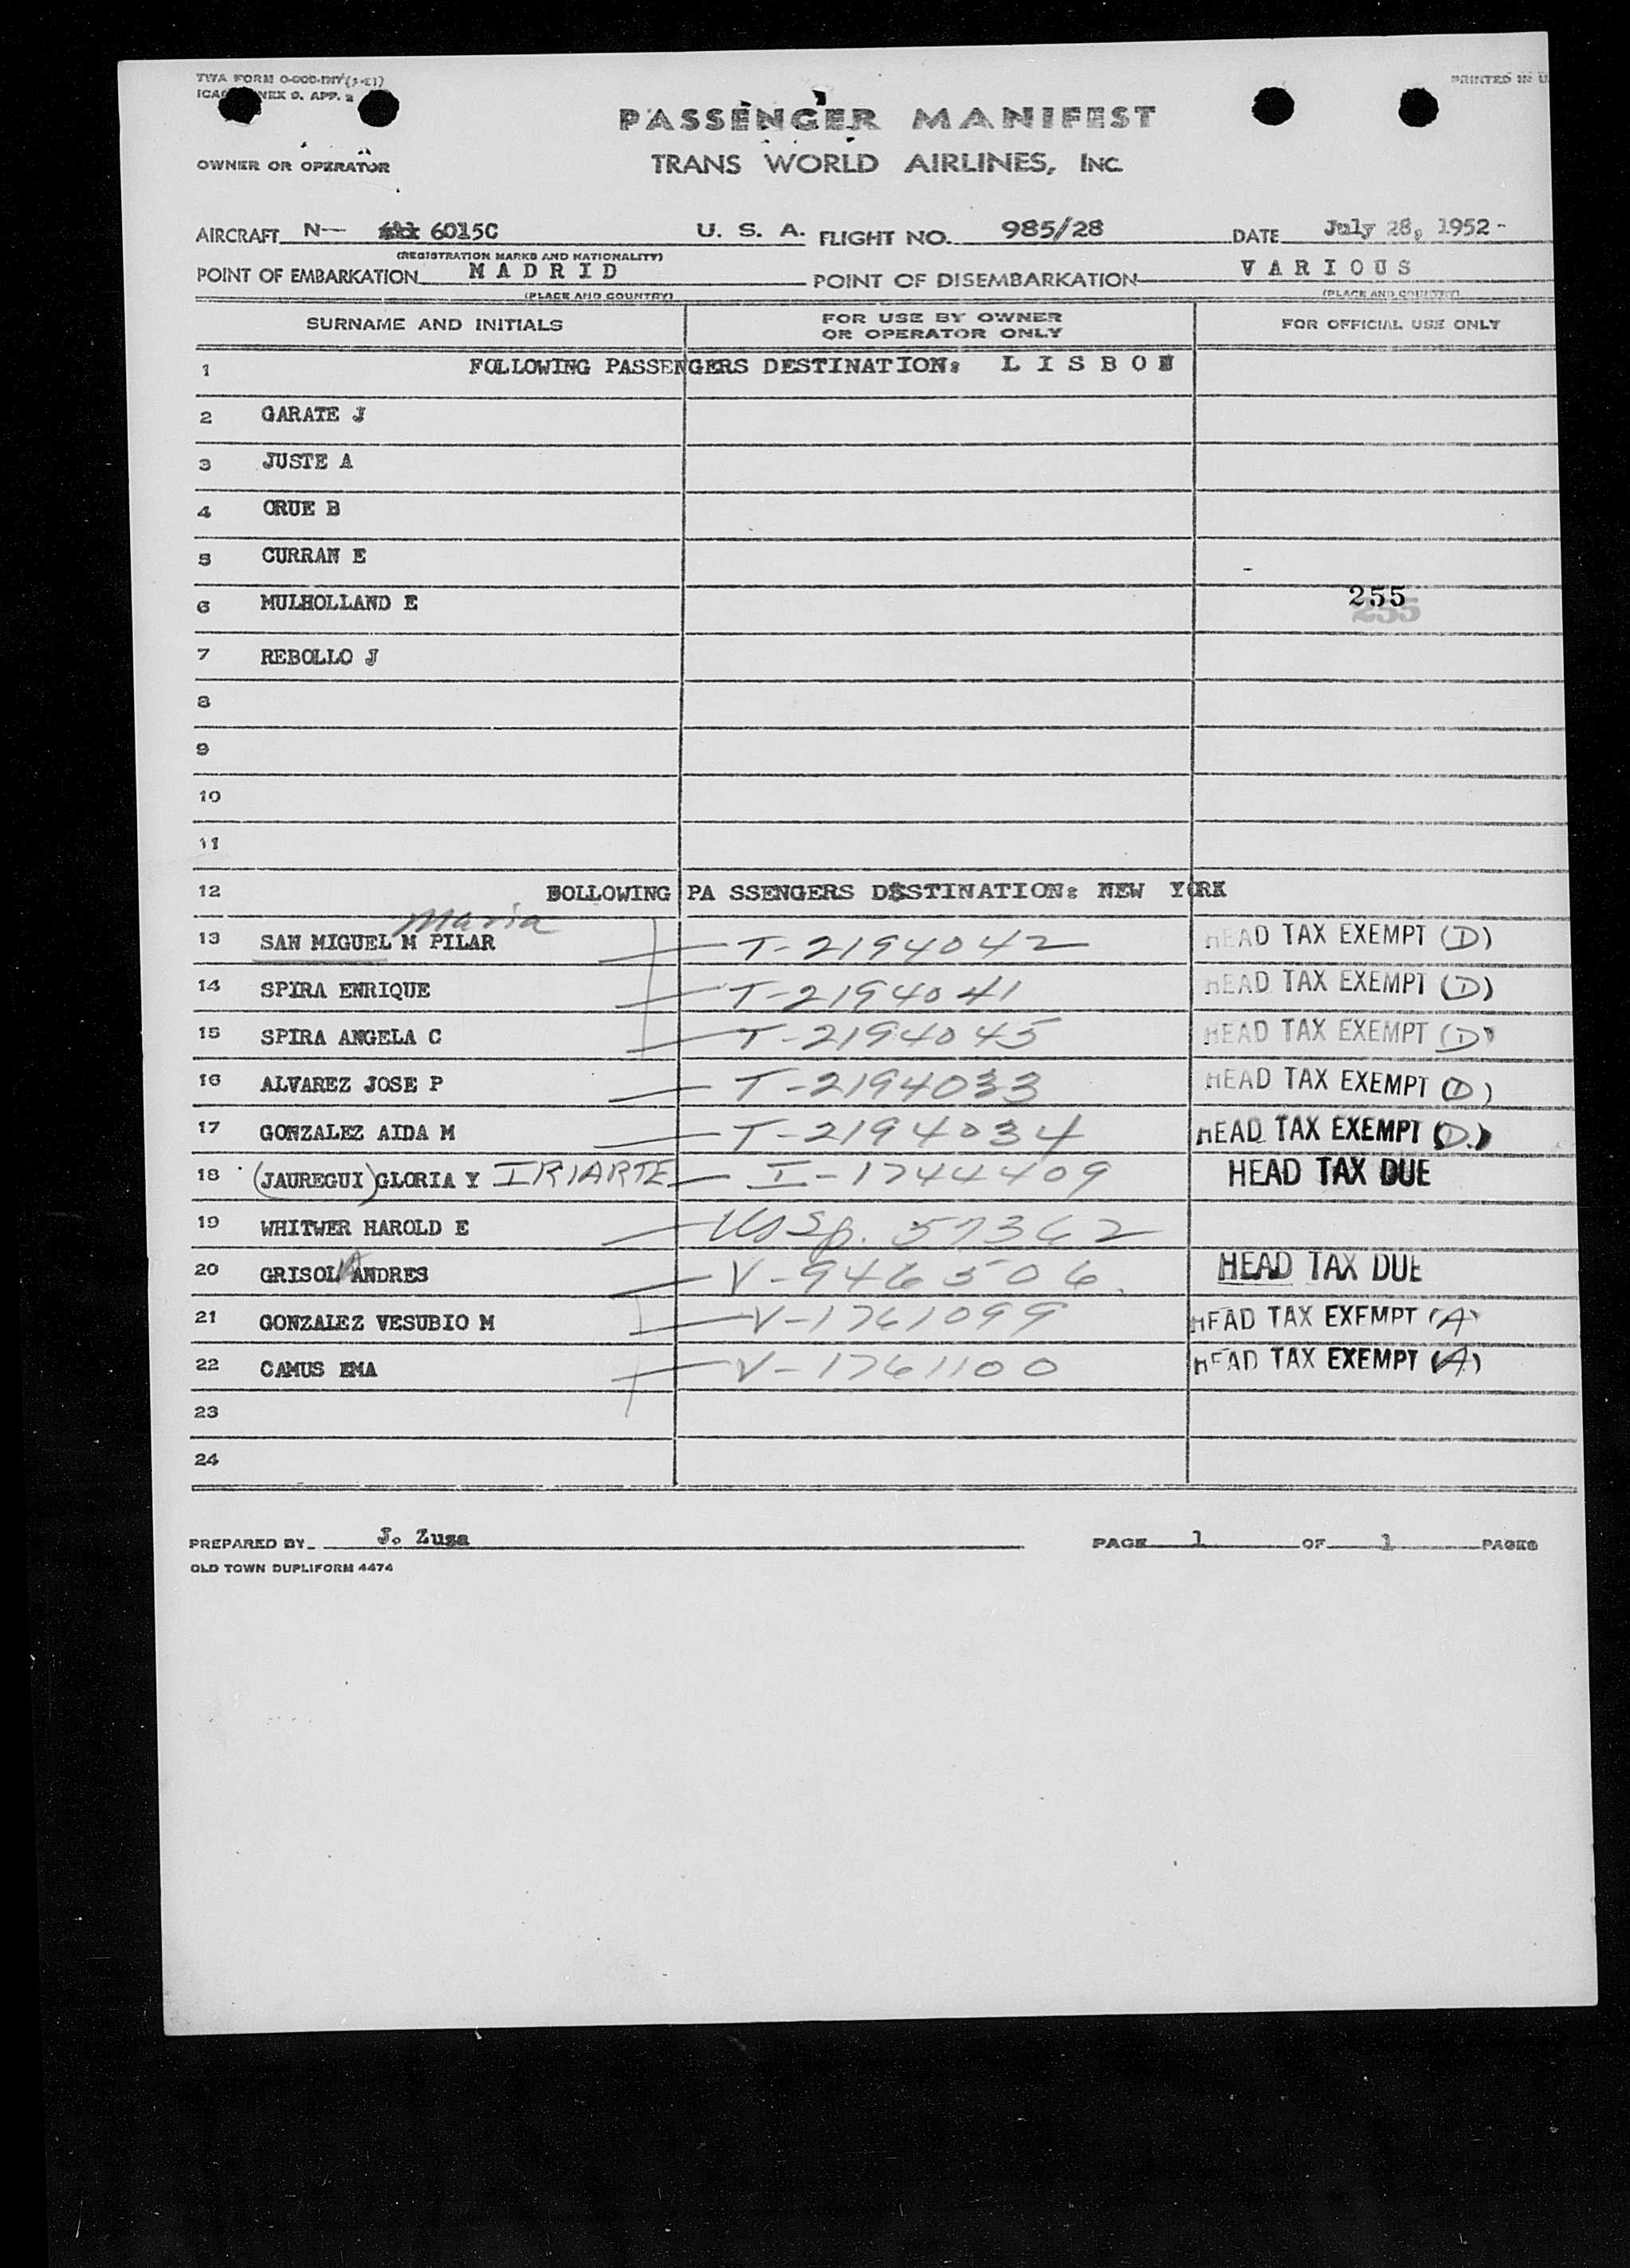 TWA FORM
PRINTED IN U
PASSENGER MANIFEST
OWNER OR OPERATOR
TRANS WORLD AIRLINES, INC.
AIRCRAFT N-- 6015C U. S. A. FLIGHT NO. 985/28 DATE July 28, 1952-
(REGISTRATION MARKS AND NATIONALITY)
POINT OF EMBARKATION MADRID POINT OF DISEMBARKATION VARIOUS
(PLACE AND COUNTRY) (PLACE AND COUNTRY)
SURNAME AND INITIALS FOR USE BY OWNER OR OPERATOR ONLY FOR OFFICIAL USE ONLY
1 FOLLOWING PASSENGERS DESTINATION: LISBON
2 GARATE J
3 JUSTE A
4 ORUE B
5 CURRAN E
6 MULHOLLAND E 255
7 REBOLLO J
8
9
10
11
12 BOLLOWING PA SSENGERS DESTINATION: NEW YORK
Maria
13 SAN MIGUEL M PILAR T-2194042 HEAD TAX EXEMPT (D)
14 SPIRA ENRIQUE T-2194041 HEAD TAX EXEMPT (D)
15 SPIRA ANGELA C T-2194045 HEAD TAX EXEMPT (D)
16 ALVAREZ JOSE P T-2194033 HEAD TAX EXEMPT (D)
17 GONZALEZ AIDA M T-2194034 HEAD TAX EXEMPT (D)
18 (JAUREGUI) GLORIA Y IRIARTE I-1744409 HEAD TAX DUE
19 WHITWER HAROLD E USSp. 57362
20 GRISOLIA ANDRES V-946506 HEAD TAX DUE
21 GONZALEZ VESUBIO M V-1761099 HEAD TAX EXEMPT (A)
22 CAMUS EMA V-1761100 HEAD TAX EXEMPT (A)
23
24
PREPARED BY J. Zuza PAGE 1 OF 1 PAGES
OLD TOWN DUPLIFORM 4474